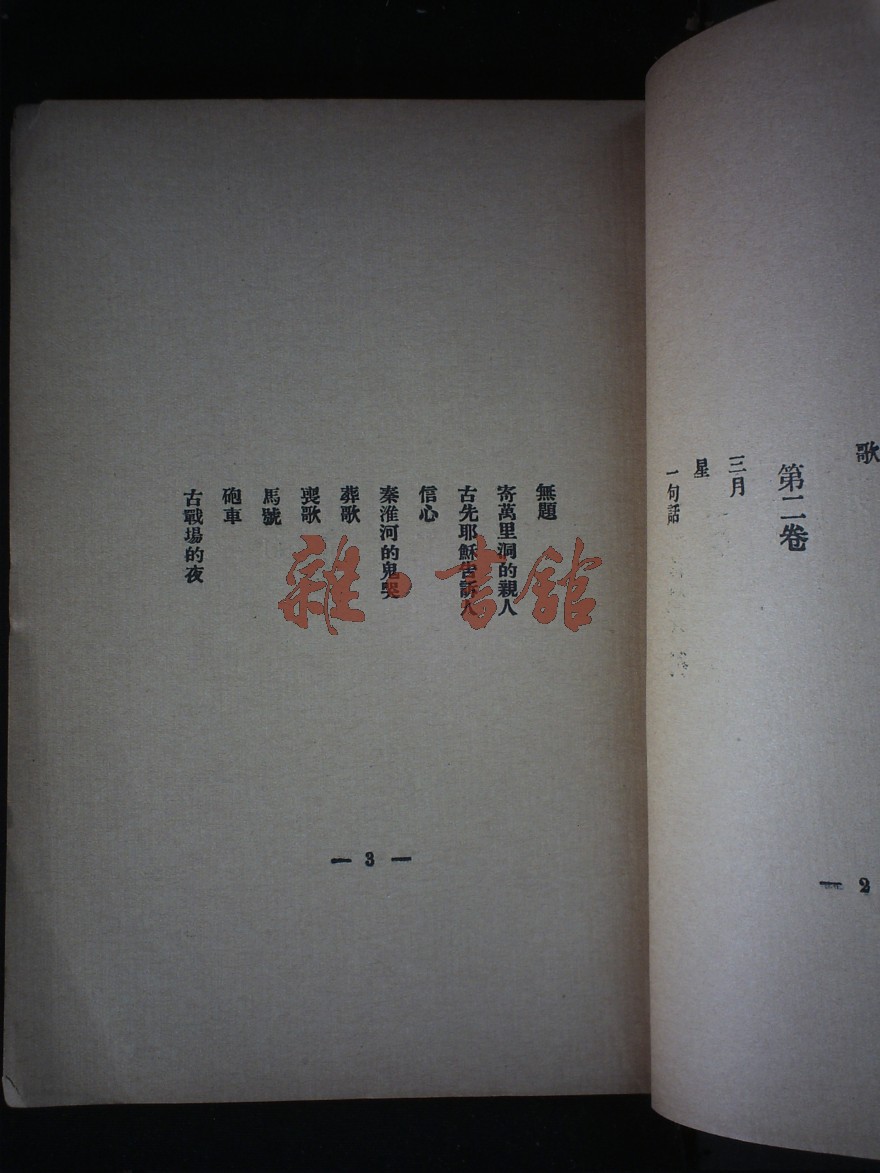 歌
第二卷
三月
星
一句話
— 2
無題
寄萬里洞的親人
古先耶穌告訴人
信心
秦淮河的鬼哭
葬歌
喪歌
馬號
砲車
古戰場的夜
— 3 —
雜·書館